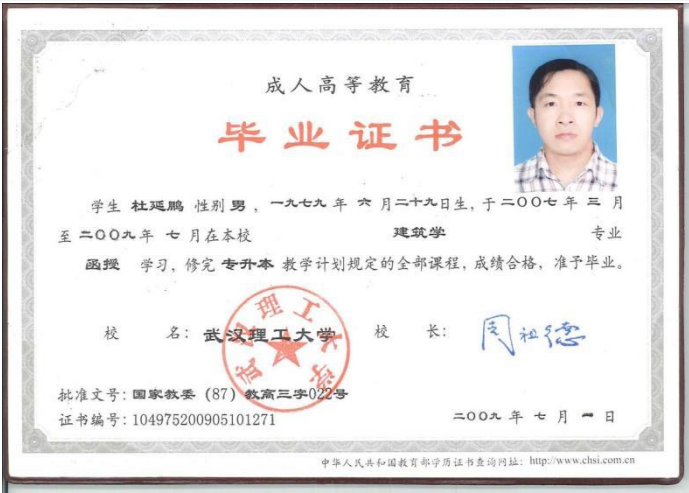 成人高等教育
毕业证书
学生 杜延鹏 性别 男，一九七九 年 六 月二十九日生，于二〇〇七 年 三 月
至 二〇〇九 年 七 月在本校 建筑学 专业
函授 学习，修完 专升本 教学计划规定的全部课程，成绩合格，准予毕业。
校 名：武汉理工大学 校 长：周祖德
武汉理工大学
批准文号：国家教委（87）教高三字022号
证书编号：104975200905101271 二〇〇九 年 七 月 一 日
中华人民共和国教育部学历证书查询网址：http://www.chsi.com.cn